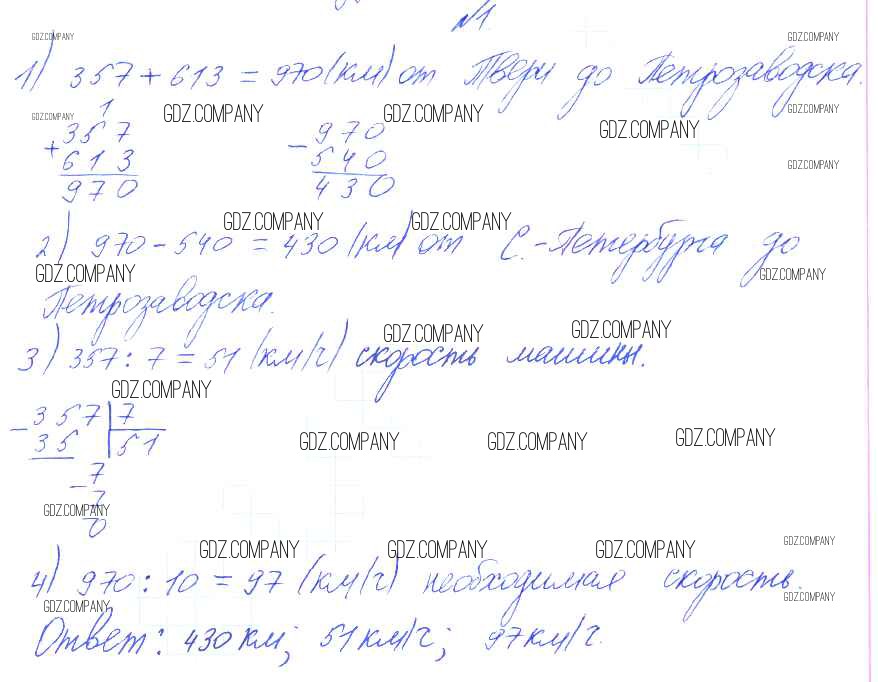 №1
GDZ.COMPANY GDZ.COMPANY
1) 357 + 613 = 970 (км) от Твери до Петрозаводска.
GDZ.COMPANY GDZ.COMPANY GDZ.COMPANY GDZ.COMPANY
1
+ 357 − 970 GDZ.COMPANY
613 540 GDZ.COMPANY
970 430
GDZ.COMPANY GDZ.COMPANY
2) 970 − 540 = 430 (км) от С.-Петербурга до
GDZ.COMPANY GDZ.COMPANY
Петрозаводска.
GDZ.COMPANY GDZ.COMPANY
3) 357 : 7 = 51 (км/ч) скорость машины.
GDZ.COMPANY
− 357 | 7
35 | 51
GDZ.COMPANY GDZ.COMPANY GDZ.COMPANY
− 7
7
GDZ.COMPANY
0
GDZ.COMPANY GDZ.COMPANY GDZ.COMPANY GDZ.COMPANY
4) 970 : 10 = 97 (км/ч) необходимая скорость.
GDZ.COMPANY GDZ.COMPANY
Ответ: 430 км; 51 км/ч; 97 км/ч.